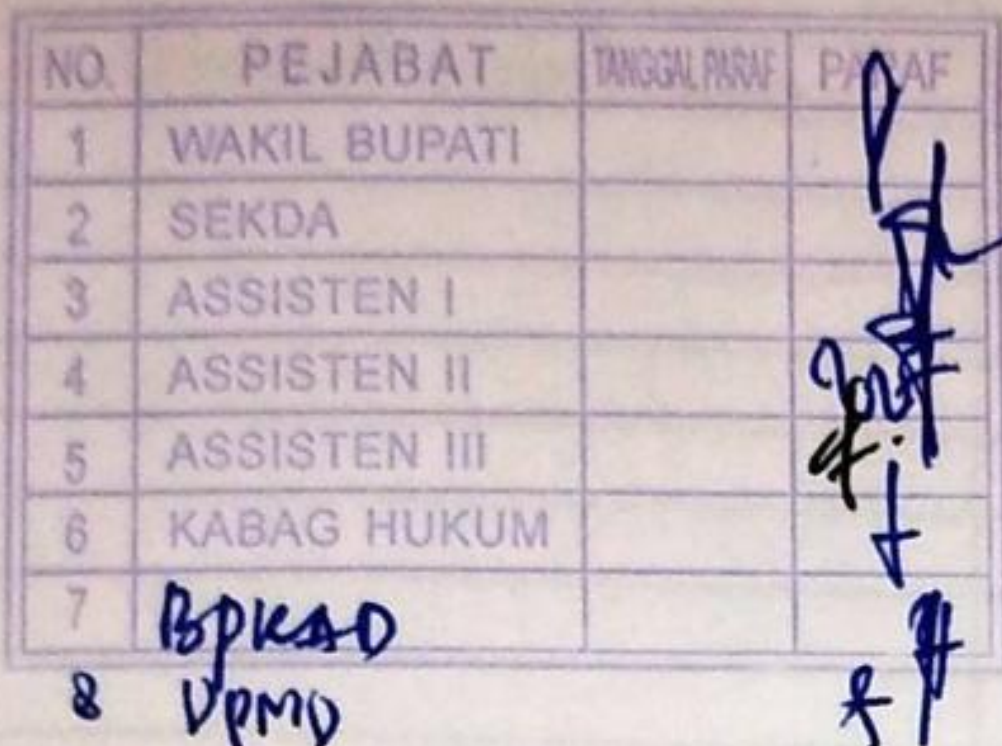 NO. PEJABAT TANGGAL PARAF PARAF
1 WAKIL BUPATI
2 SEKDA
3 ASSISTEN I
4 ASSISTEN II
5 ASSISTEN III
6 KABAG HUKUM
7 BPKAD
8